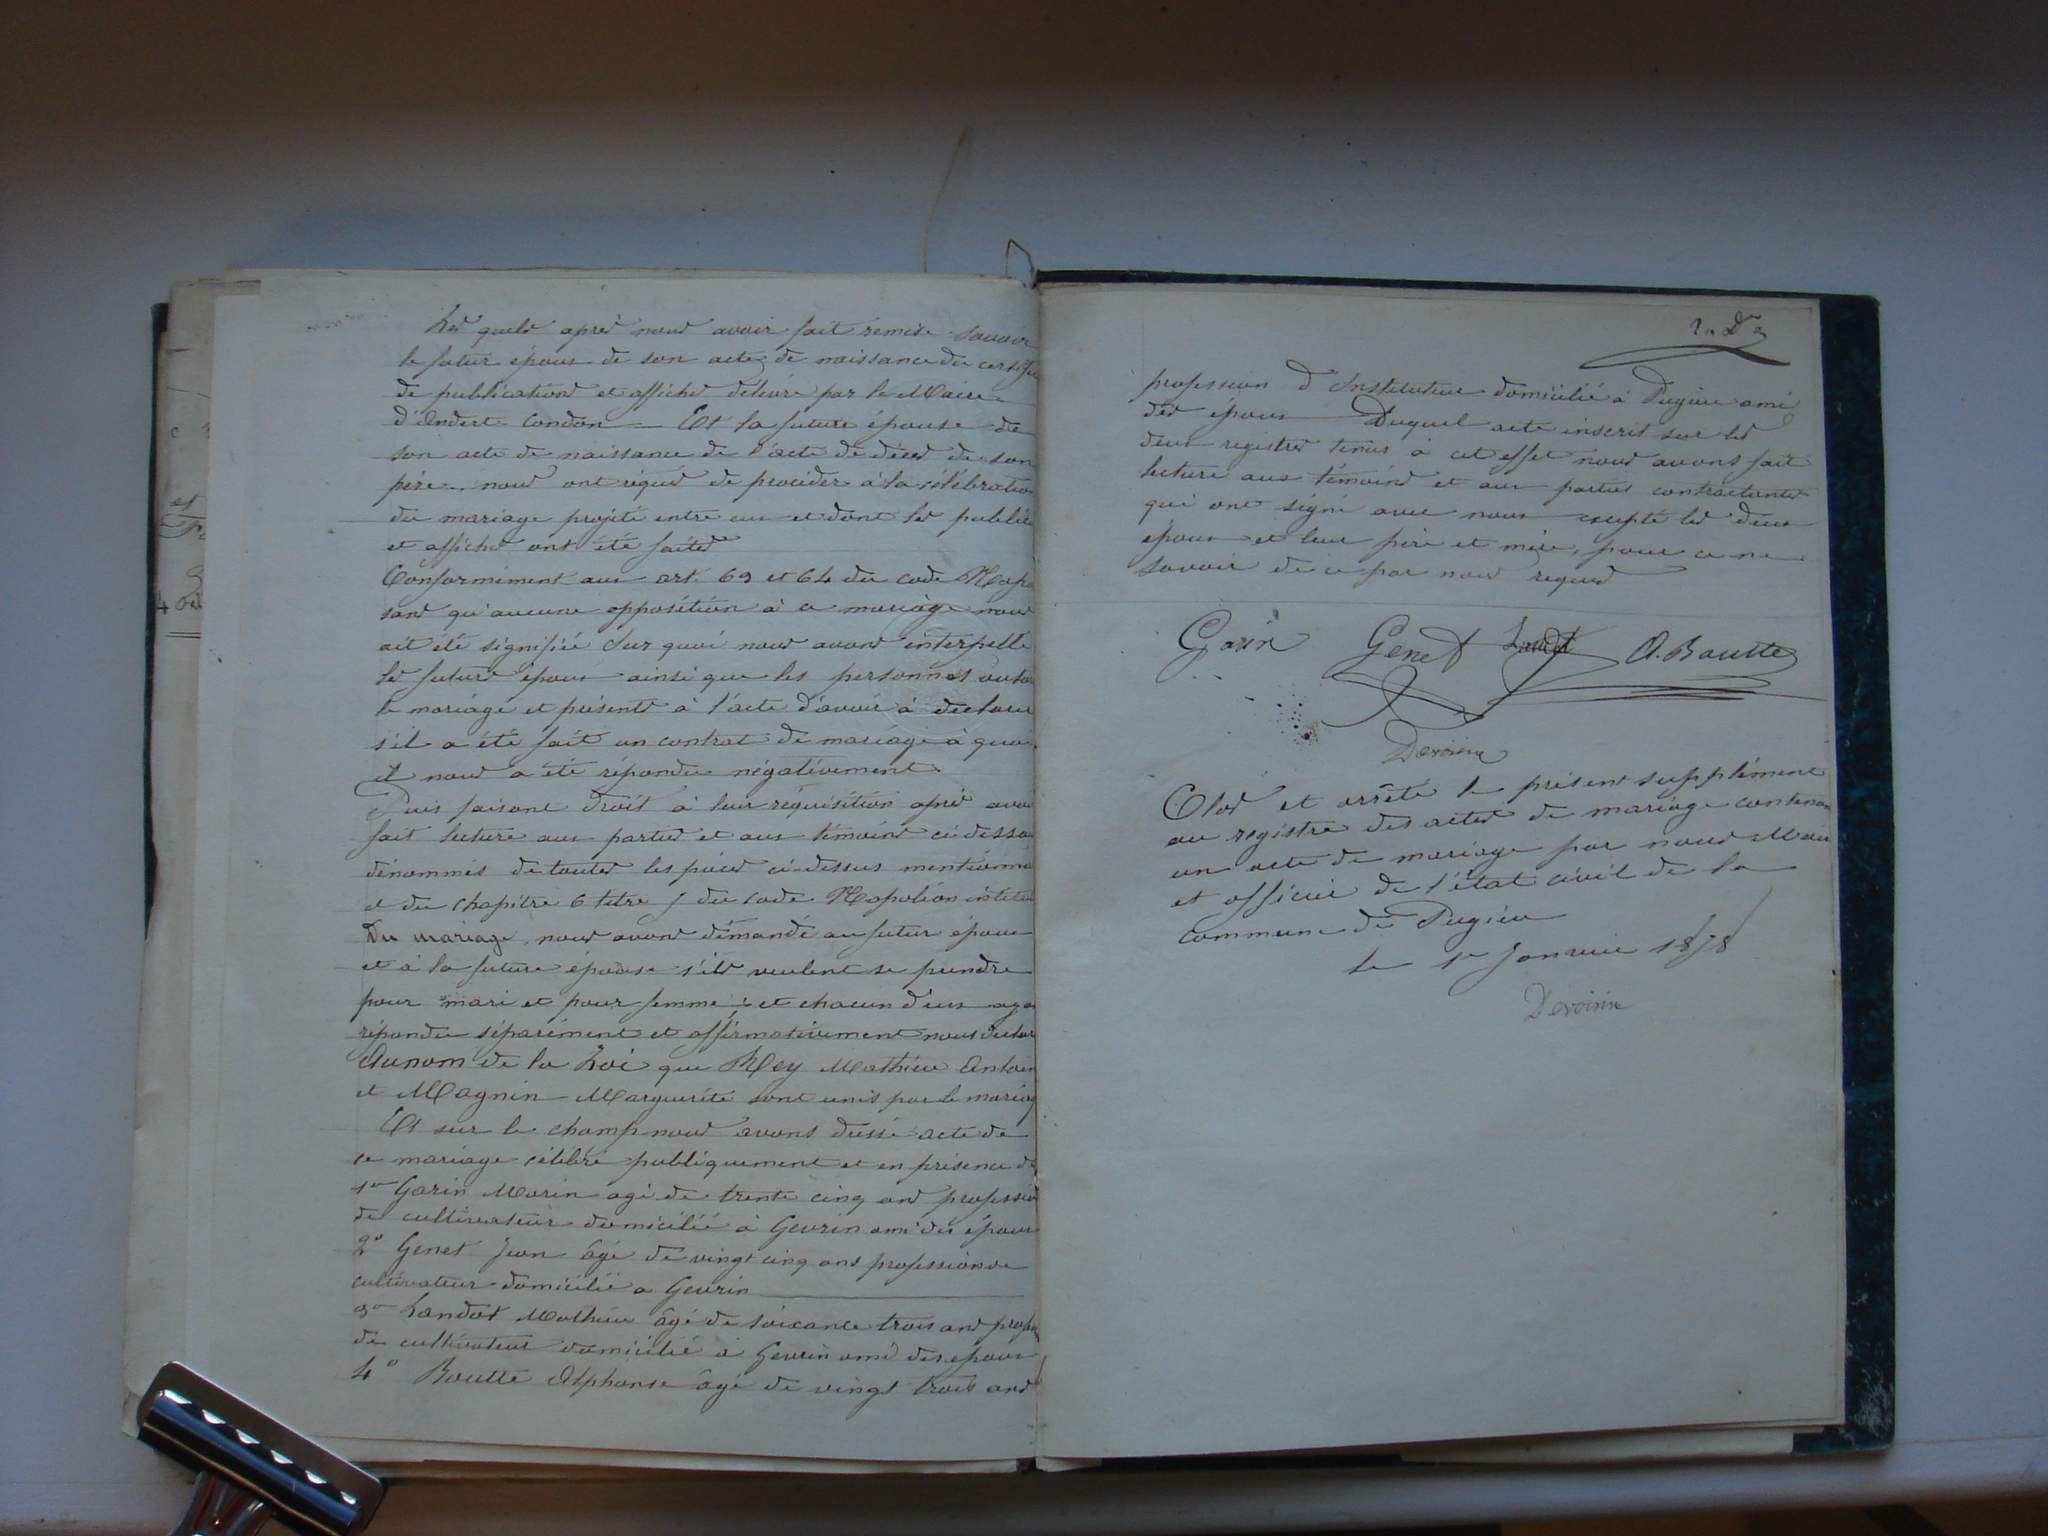 Les quels après nous avoir fait remise savoir
le futur époux de son acte de naissance du certifi
de publications et affiches délivré par le Maire
d'Andert Condon Et la future épouse de
son acte de naissance de l'acte de décès de son
père nous ont réquis de procéder à la célébration
du mariage projeté entre eux et dont les public
et affiches ont été faites
Conformément aux art. 63 et 64 du code Napo
sans qu'aucune opposition à ce mariage nous
ait été signifiée Sur quoi nous avons interpellé
les futurs époux ainsi que les personnes autor
le mariage et présents à l'acte d'avoir à declarer
s'il a été fait un contrat de mariage à quoi
il nous a été répondu négativement
Puis faisant droit à leur réquisition après avoi
fait lecture aux parties et aux témoins ci-dessu
dénommés de toutes les pièces ci-dessus mentionné
et du chapitre 6 titre 5 du code Napoléon intitu
Du mariage, nous avons démandé au futur époux
et à la future épouse s'ils veulent se prendre
pour mari et pour femme ; et chacun d'eux aya
répondu séparément et affirmativement nous declar
Au nom de la Loi que Rey Mathieu Antoin
et Magnin Marguerite sont unis par le mariag
Et sur le champ nous avons dressé acte de
ce mariage célébré publiquement et en présence de
1er Garin Marin agé de trente cinq ans professio
de cultivateur domicilié à Gevrin ami des époux
2° Genet Jean âgé de vingt cinq ans profession de
cultivateur domicilié a Gevrin
3° Landot Mathieu âgé de soixante trois ans profes
de cultivateur domicilié à Gevrin ami des époux
4° Boutte Alphonse âgé de vingt trois ans
profession d'Instituteur domicilié à Pugieu ami
des époux Duquel acte inscrit sur les
deux registres tenus à cet effet nous avons fait
lecture aux témoins et aux parties contractantes
qui ont signé avec nous excepté les deux
époux et leur père et mère, pour ce ne
savoir de ce par nous requis
Garin Genet Landot A. Boutte
Devoirin
Clos et arrêté le présent supplément
au registre des actes de mariage contenan
un acte de mariage par nous Mair
et officier de l'état civil de la
commune de Pugieu
le 1er Janvier 1878
Devoirin